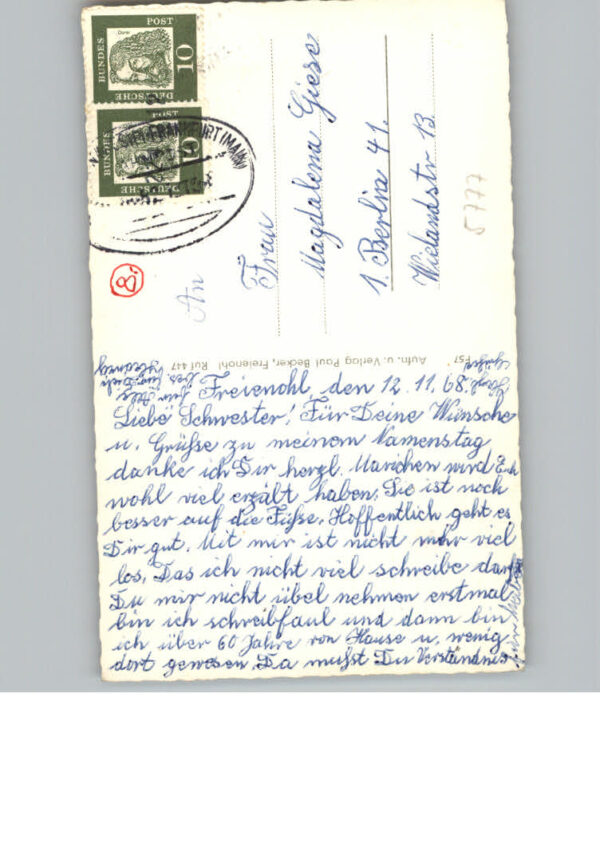 DEUTSCHE BUNDESPOST
10
Dürer
DEUTSCHE BUNDESPOST
10
FRANKFURT (MAIN)
8.
An
Frau
Magdalena Giese
1. Berlin 41.
Wielandstr 13.
5777
F57 Aufn. u. Verlag Paul Becker, Freienohl Ruf 447
Freienohl den 12.11.68.
Liebe Schwester! Für Deine Wünsche
u. Grüße zu meinem Namenstag
danke ich Dir herzl. Marichen wird Euch
wohl viel erzält haben. Sie ist noch
besser auf die Füße. Hoffentlich geht es
Dir gut. Mit mir ist nicht mehr viel
los. Das ich nicht viel schreibe darfst
Du mir nicht übel nehmen erstmal
bin ich schreibfaul und dann bin
ich über 60 Jahre von Hause u. wenig
dort gewesen Da mußt Du Verständnis
Herzl. Grüße